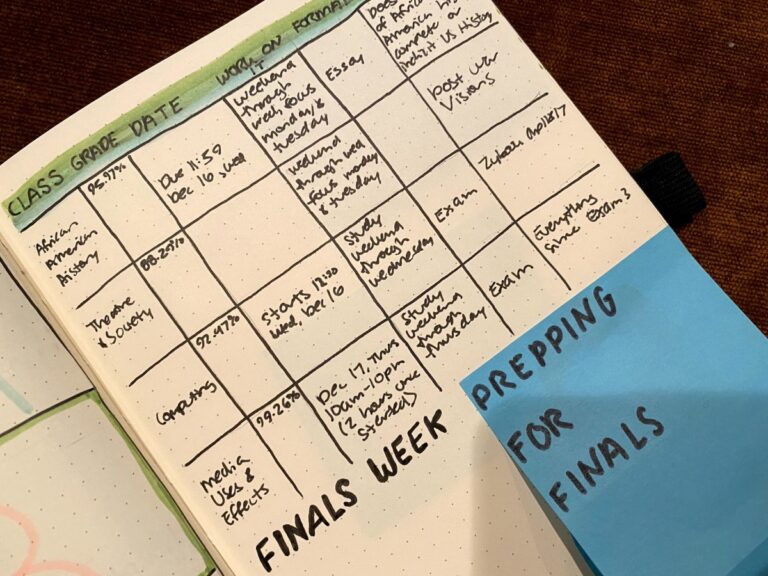 CLASS GRADE DATE WORK ON IT FORMAT
African
American
History
95.97%
Due 11:59
Dec 16, wed
weekend
through
wed, focus
monday &
tuesday
Essay
Does
of Africa
America
compete or
US History
Theatre
& Society
88.29%
weekend
through wed
focus monday
& tuesday
post war
Visions
Computing
92.47%
Starts 12:30
Wed, Dec 16
Study
weekend
through
wednesday
Exam
Media
Uses &
Effects
99.26%
Dec 17, Thurs
10am-10pm
(2 hours once
started)
Study
weekend
through
thursday
Exam
Everything
since Exam 3
FINALS WEEK
PREPPING
FOR
FINALS